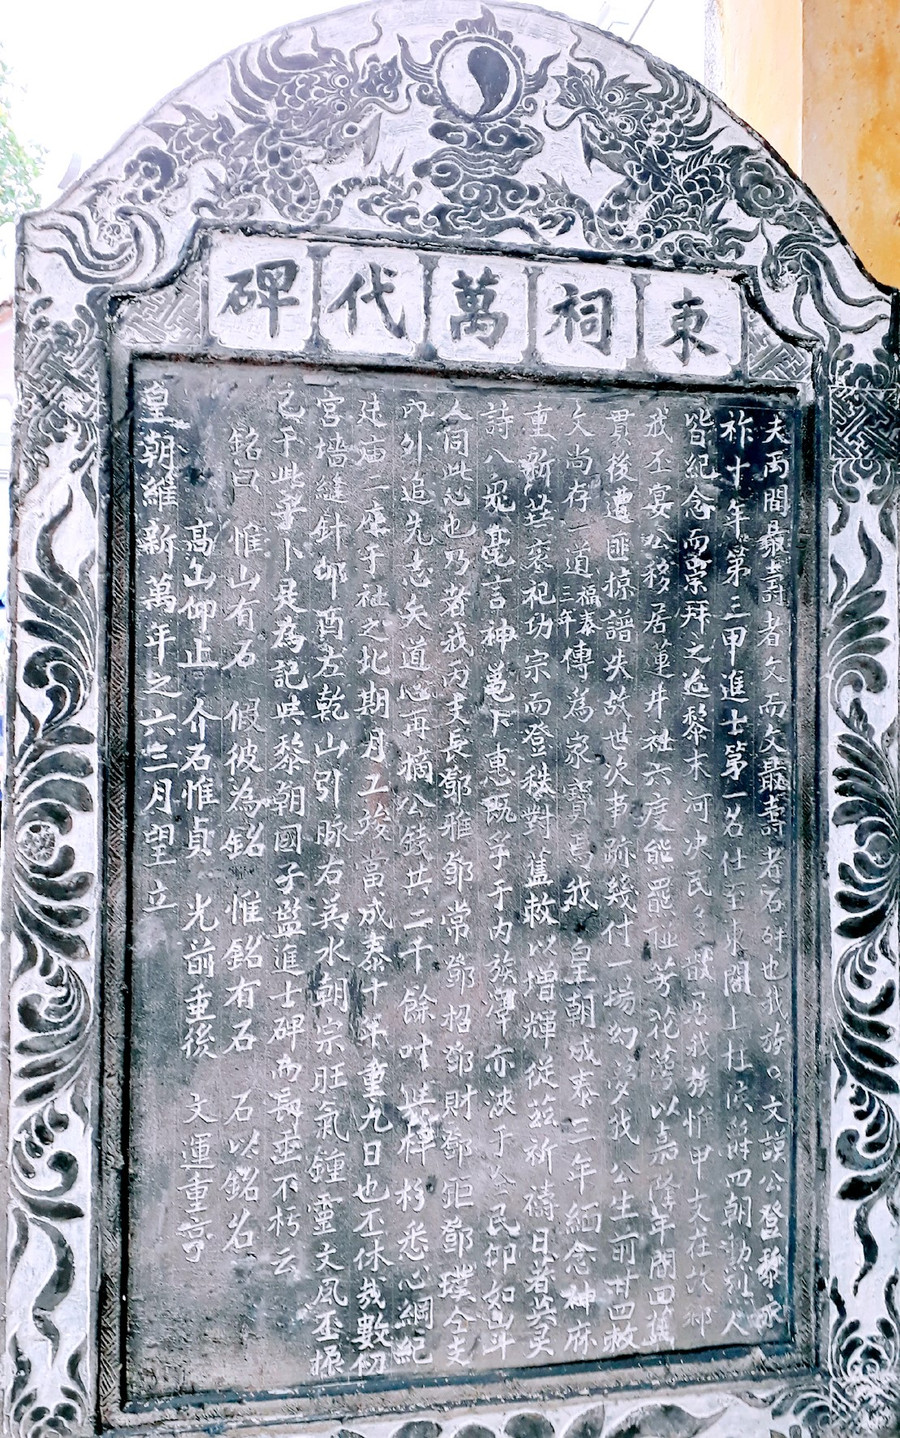 東祠萬代碑
夫兩間最壽者文而文最壽者石碑也我族文謨公登黎永
祚十年第三甲進士第一名仕至東閣上柱國四朝勳烈人
皆紀念而崇拜之迨黎末河決民多散居我族忻甲支在故鄉
戒丕宴公移居蓮井社六度能羆誕芳花萼以嘉隆年間回籍
貫後遭匪掠譜失故世次事跡幾付一場幻夢我公生前廿四敕
文尚存一道福泰三年傳為家寶焉我皇朝成泰三年緬念神庥
重新芸褒祀功宗而登秩對舊敕以增輝從茲祈禱日著
詩八鬼毫言神黽下惠既孚于內族澤亦決于公民仰如山斗
人同此心也乃者我丙支長鄧雅鄧常鄧招鄧財鄧距鄧璞今支
內外追先志矢道心再摘公錢共二千餘叶悉心綱紀
建庙二座于社之北期月工竣當成泰十年重九日也丕休哉數仞
宮墻縫針卯酉左乾山引脈右水朝宗旺氣鍾靈文風丕振
已于此乎卜是為記與黎朝國子監進士碑而長垂不朽云
銘曰 惟山有石 假彼為銘 惟銘有石 石以銘名
高山仰止 介石惟貞 光前垂後 文運重亨
皇朝維新萬年之六三月望立